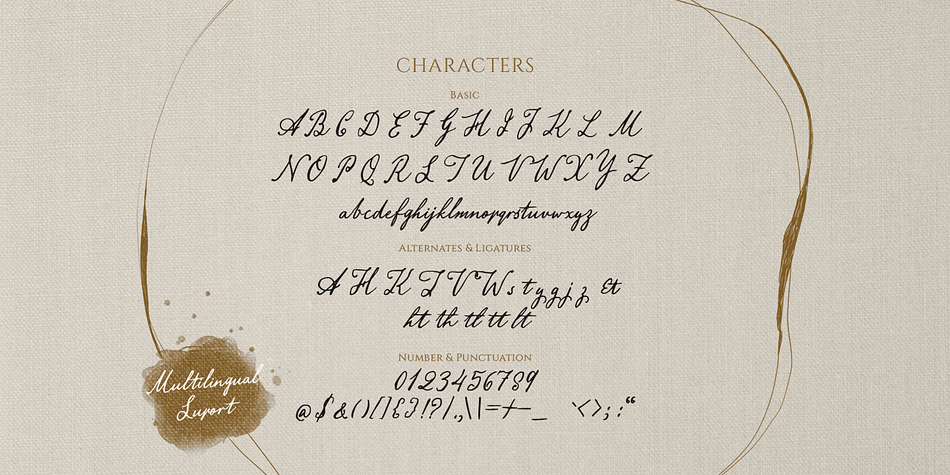 CHARACTERS
BASIC
A B C D E F G H I J K L M
N O P Q R S T U V W X Y Z
abcdefghijklmnopqrstuvwxyz
ALTERNATES & LIGATURES
A H K T V W s t y g j z &
ht th tl tt lt
NUMBER & PUNCTUATION
0123456789
@$&()[]{}!?/.,\|=+-_ `<>;:“
Multilingual
Suport